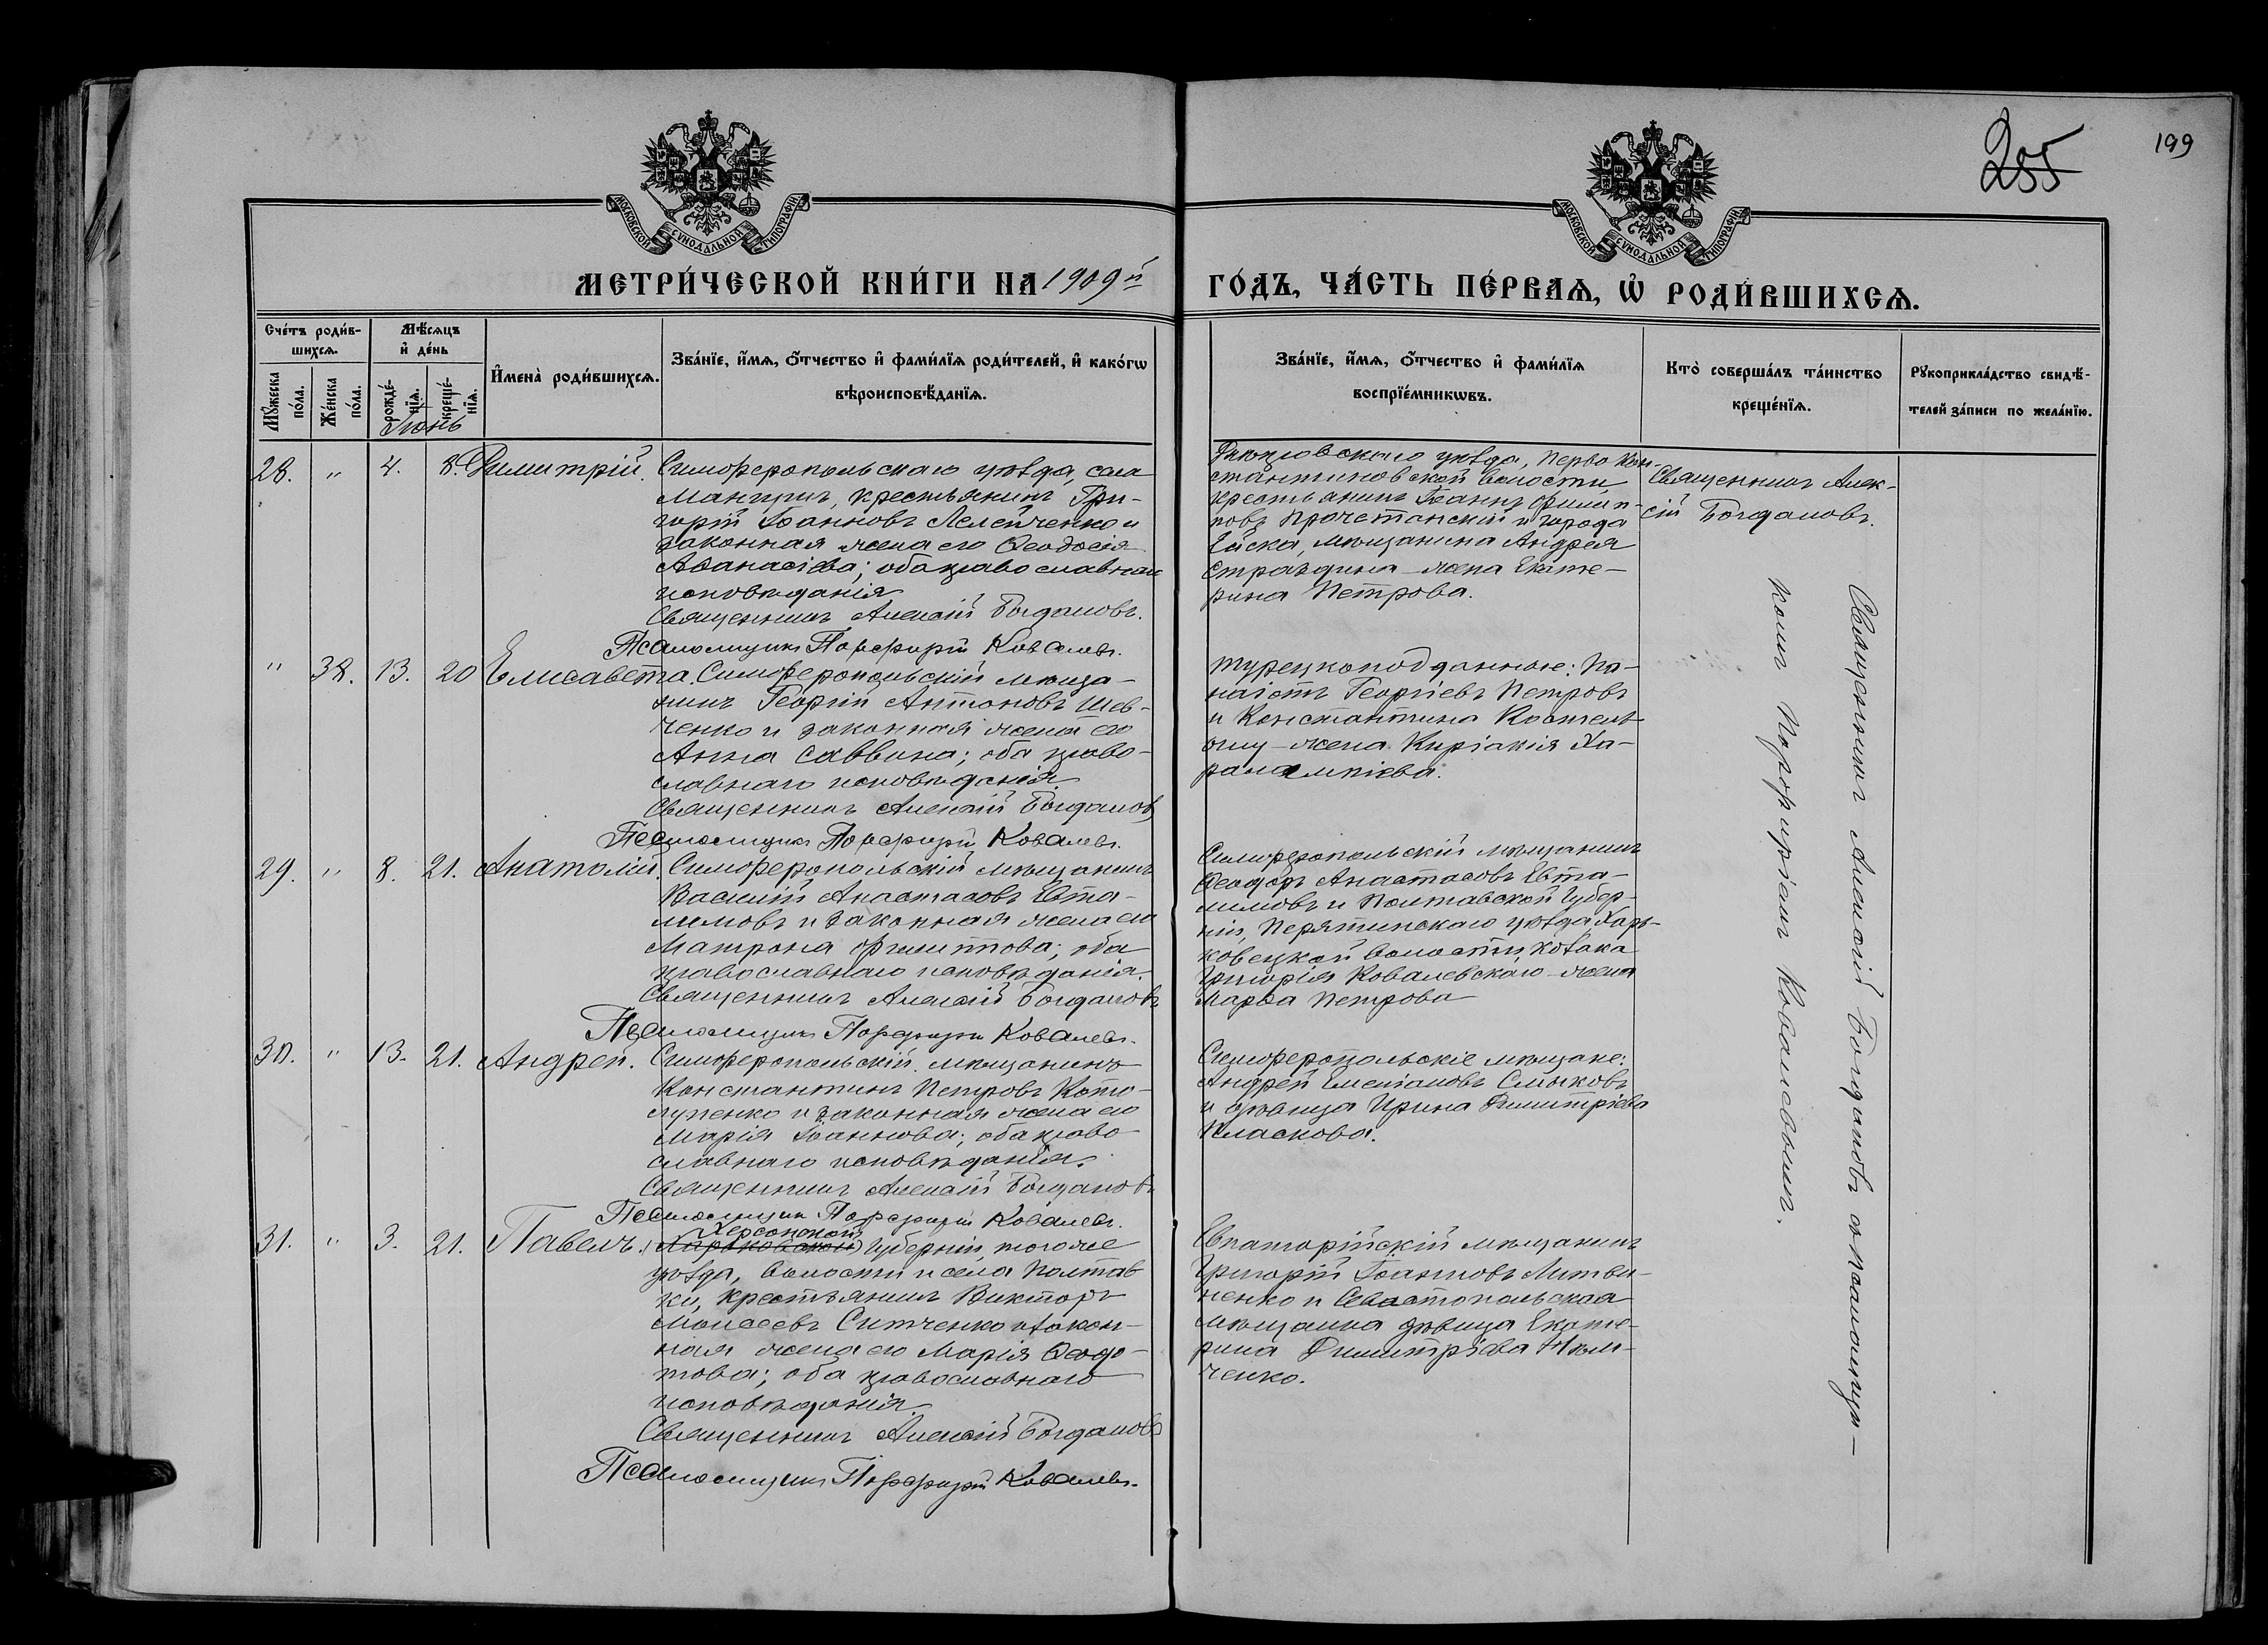 255
199
МОСКОВСКОЙ СѴНОДАЛЬНОЙ ТИПОГРАФІИ
МОСКОВСКОЙ СѴНОДАЛЬНОЙ ТИПОГРАФІИ
МЕТРИ́ЧЕСКОЙ КНИ́ГИ НА 1909й
ГО́ДЪ, ЧА́СТЬ ПЕ́РВАѦ, Ѡ҆ РОДИ́ВШИХСѦ.
Сче́тъ роди́в-
шихсѧ.
Мꙋ́жеска
по́ла.
Же́нска
по́ла.
Мѣ́сѧцъ
и҆ де́нь
рожде́-
нїѧ.
креще́-
нїѧ.
И҆мена̀ роди́вшихсѧ.
Зва́нїе, и҆́мѧ, ѻ҆́тчество и҆ фами́лїѧ роди́телей, и҆ како́гѡ
вѣроисповѣ́данїѧ.
Зва́нїе, и҆́мѧ, ѻ҆́тчество и҆ фами́лїѧ
воспрїе́мникѡвъ.
Кто̀ соверша́лъ та́инство
креще́нїѧ.
Рꙋкоприкла́дство свидѣ́-
телей за́писи по жела́нїю.
Іюнь
28. " 4. 8. Димитрій.
Симферопольскаго уѣзда, села
Мангушъ, крестьянинъ Гри-
горій Іоанновъ Лелейченко и
законная жена его Ѳеодосія
Аѳанасіева; оба православнаго
исповѣданія
Священникъ Алексій Богдановъ.
Псаломщикъ Порфирій Ковалевъ.
уѣзда, Перво Кон-
стантиновской волости
крестьянинъ Іоаннъ Филип-
повъ и города
Ейска, мѣщанина Андрея
жена Екате-
рина Петрова.
Священникъ Алек-
сій Богдановъ.
" 38. 13. 20 Елисавета.
Симферопольскій мѣща-
нинъ Георгій Антоновъ Шев-
ченко и законная жена его
Анна Саввина; оба право-
славнаго исповѣданія
Священникъ Алексій Богдановъ
Псаломщикъ Порфирій Ковалевъ.
турецкоподданные: Па-
наіотъ Георгіевъ Петровъ
и Константина
жена Киріакія Ха-
рлампіева.
29. " 8. 21. Анатолій.
Симферопольскій мѣщанинъ
Василій Анастасовъ Евта-
лимовъ и законная жена его
Матрона Филиппова; оба
православнаго исповѣданія.
Священникъ Алексій Богдановъ
Псаломщикъ Порфирій Ковалевъ.
Симферопольскій мѣщанинъ
Ѳеодоръ Анастасовъ Евта-
лимовъ и Полтавской Губер-
ніи, Перятинскаго уѣзда, Харь-
ковецкой волости, козака
Григорія Ковалевскаго жена
Марѳа Петрова
30. " 13. 21. Андрей.
Симферопольскій мѣщанинъ
Константинъ Петровъ Кото-
лупенко и законная жена его
Марія Іоаннова; оба право-
славнаго исповѣданія.
Священникъ Алексій Богдановъ
Псаломщикъ Порфирій Ковалевъ.
Симферопольскіе мѣщане:
Андрей Смыковъ
и дѣвица Ирина Димитріева
Пласкова.
31. " 3. 21. Павелъ.
Херсонской
(Харьковской) Губерніи, того же
уѣзда, волости и села Полтав-
ки, крестьянинъ Викторъ
Моисеевъ Ситченко и закон-
ная жена его Марія Ѳедо-
това; оба православнаго
исповѣданія
Священникъ Алексій Богдановъ
Псаломщикъ Порфирій Ковалевъ.
Евпаторійскій мѣщанинъ
Григорій Іоанновъ Литви-
ненко и Севастопольская
мѣщанка дѣвица Екате-
рина Димитріева
ченко.
Священникъ Алексій Богдановъ съ псаломщи-
комъ Порфиріемъ Ковалевымъ.